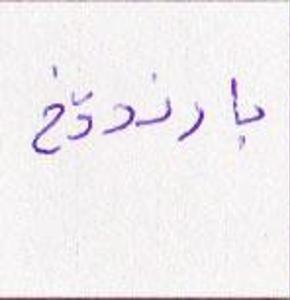 بارندوّخ